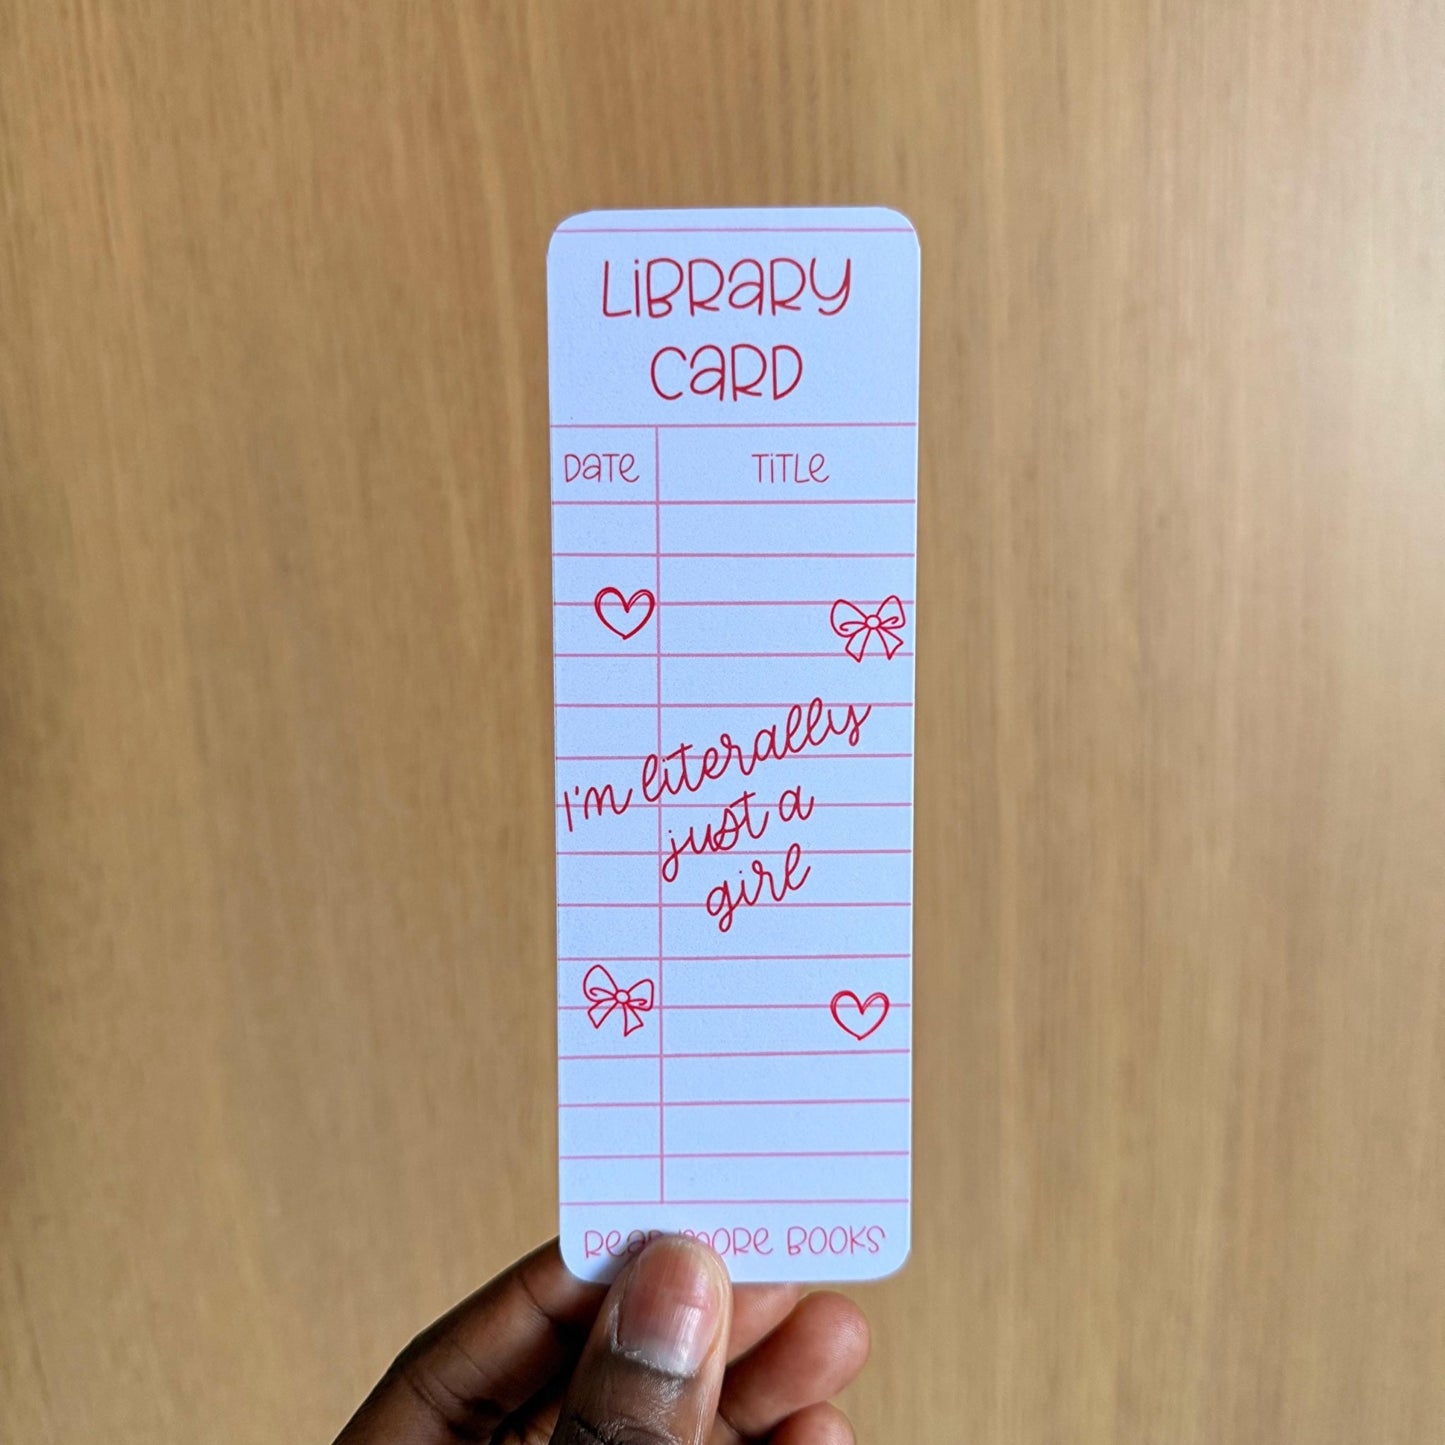 LiBRaRY
CaRD
DaTe
TiTLe
I'm literally
just a
girl
Read more BOOKS